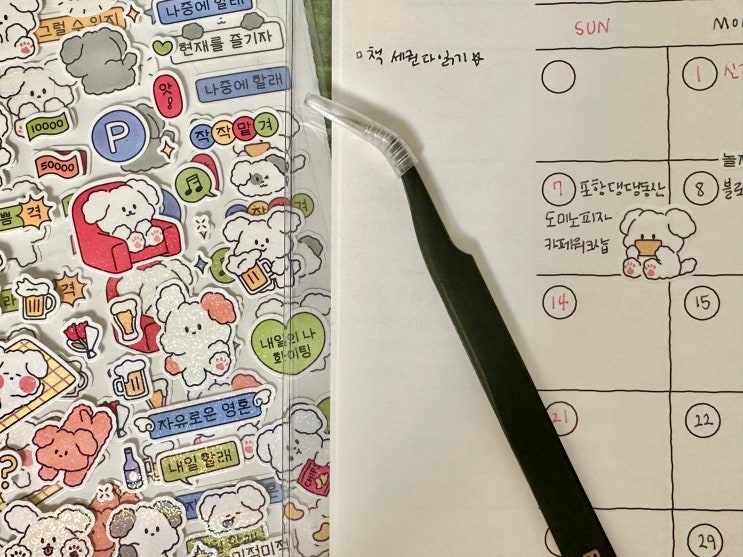 나중에 할래
그럴 수 있지
현재를 즐기자
나중에 할래
앗!
10000
P
작작맡겨
50000
격
격
내일의 나
화이팅
자유로운 영혼
내일 할래
?
CHIPS
SUN
책 세권 다 읽기
1
7 포항 댕댕동산
도미노피자
카페워크샵
8
14
15
21
22
29